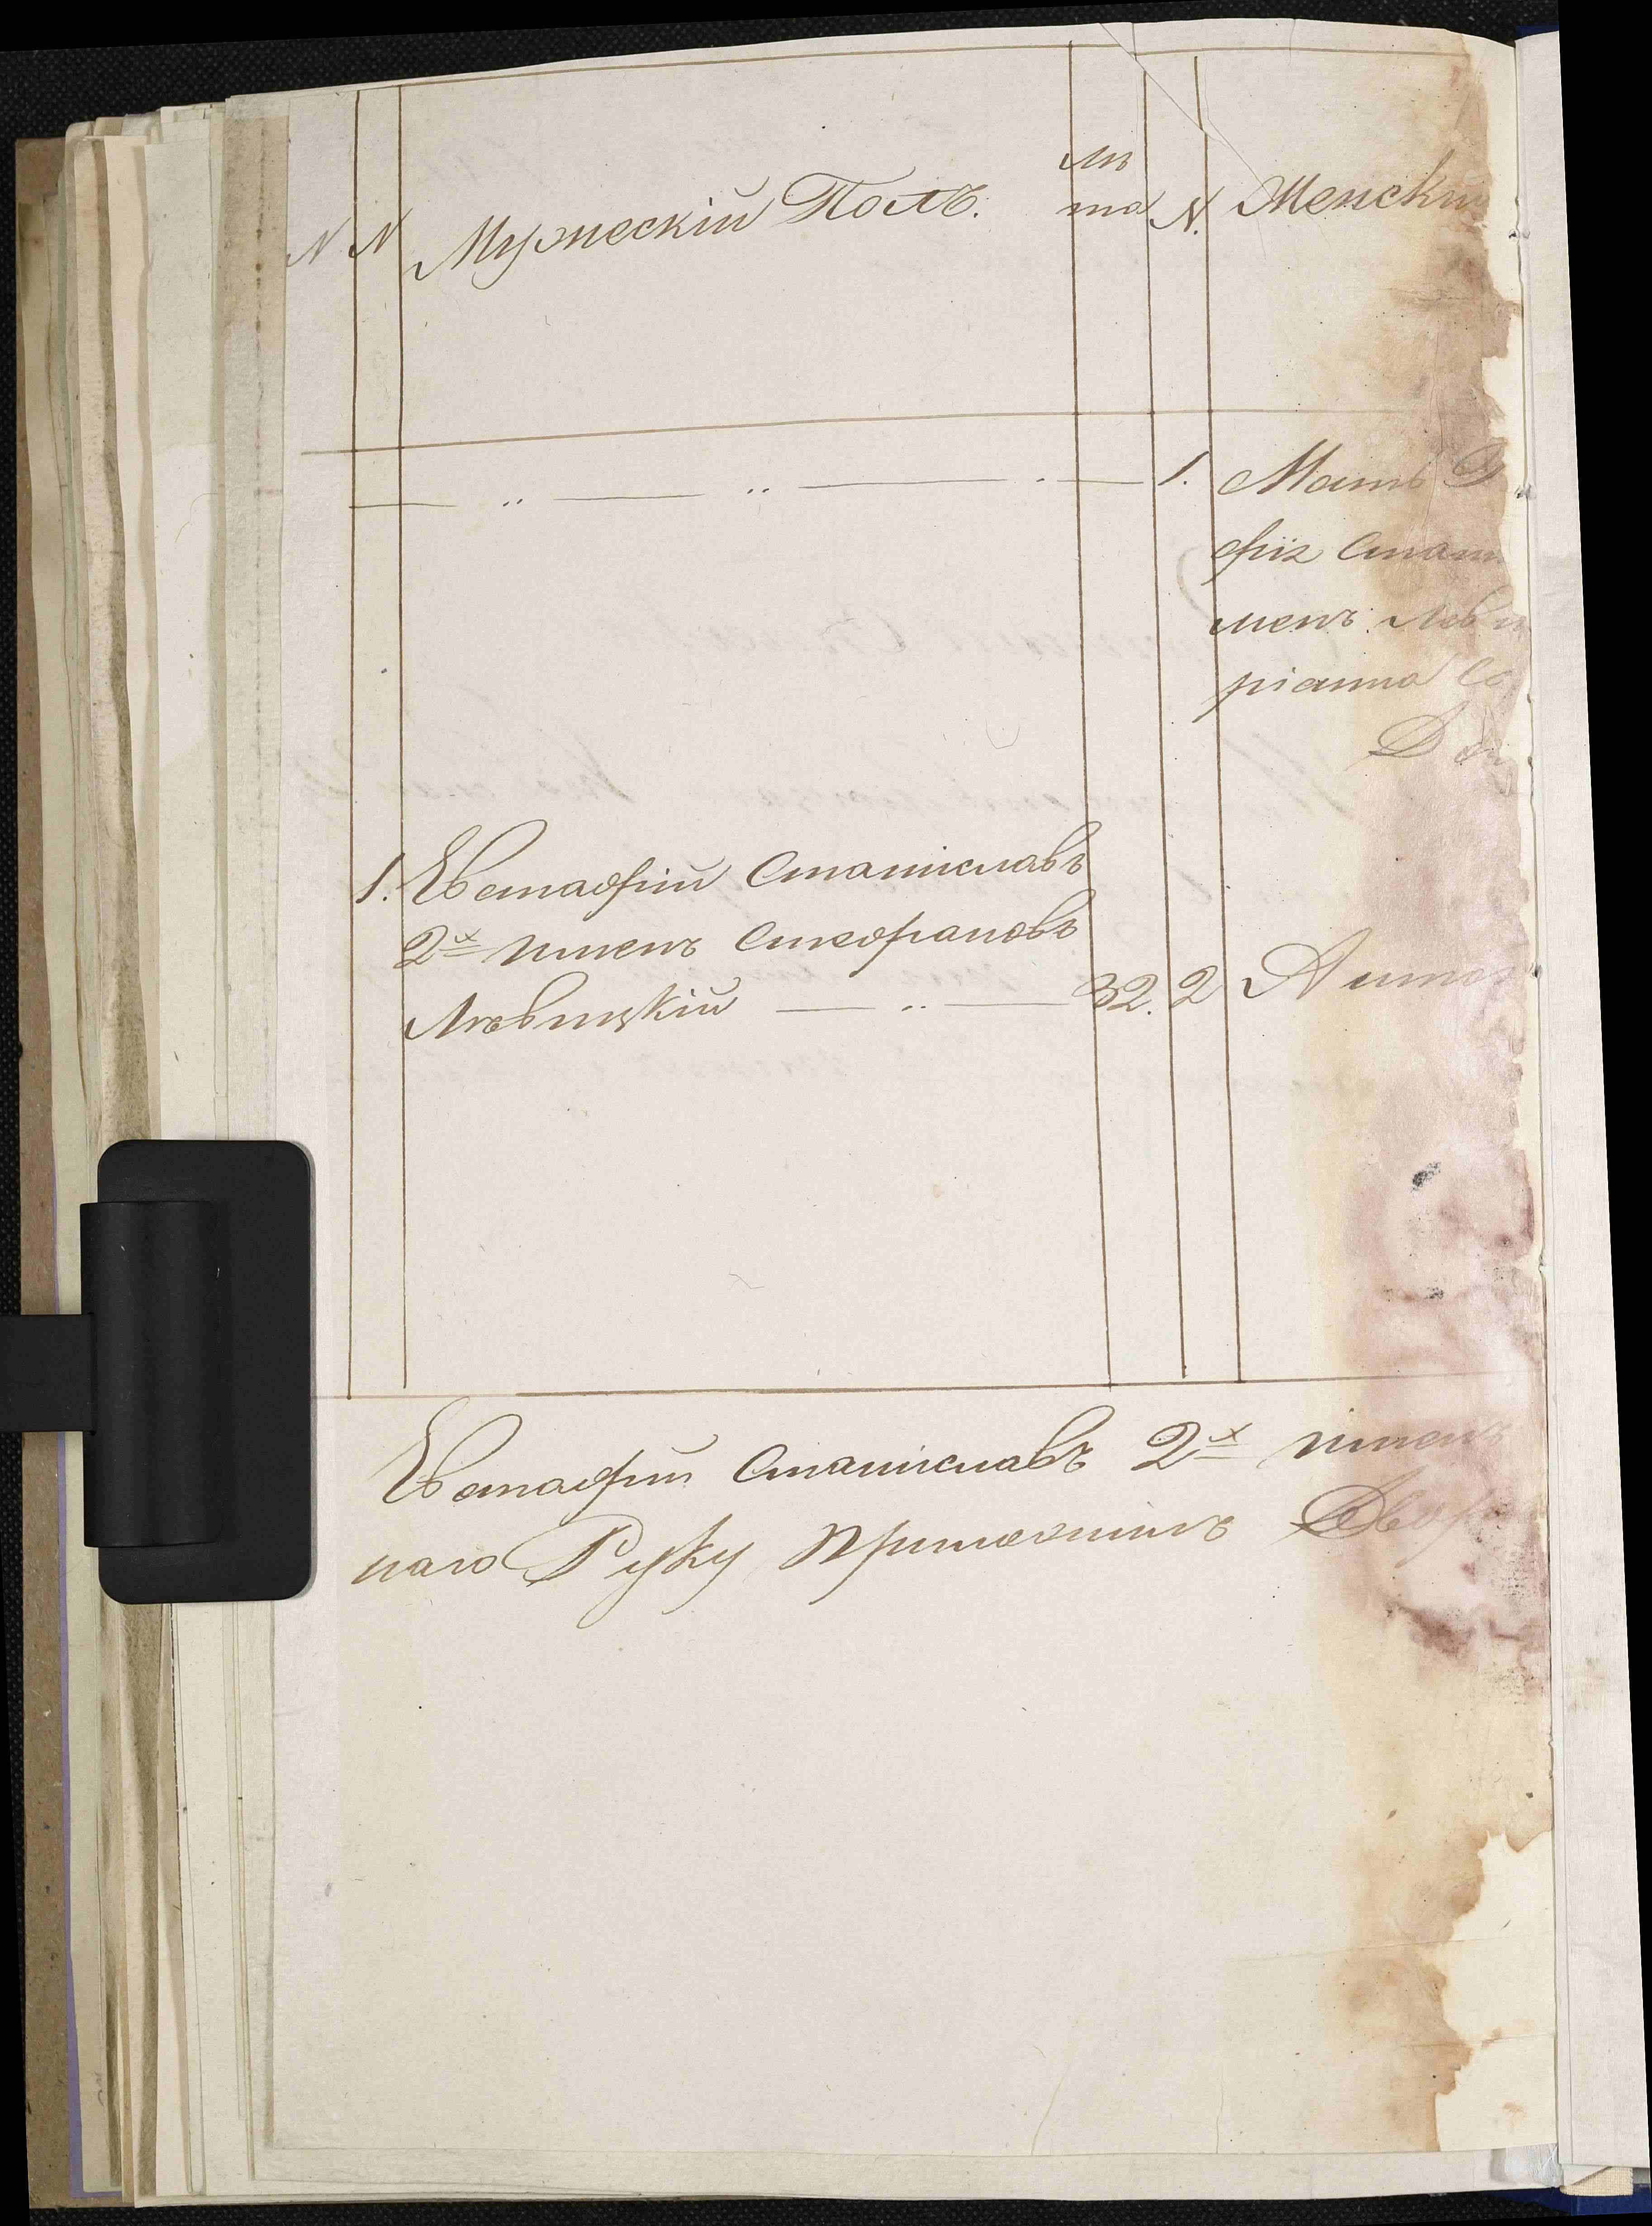 N N Мужескій Полъ. лѣта N. Женски
1. Мать
фія Стан
менъ Лев
ріанна Со
1. Евстафій Станиславъ
2х именъ Стефановъ
Лѣвицкій 32. 2 Анто
Евстафій Станиславъ 2х именъ
наго Руку приложилъ Двор